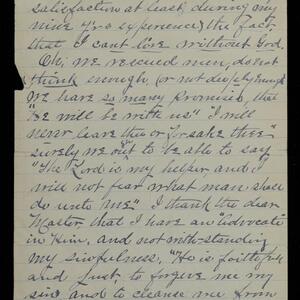 satisfaction at least, during my
nine yrs experience) the fact,
that I cant live without God.
Oh, we rescued men, do not
think enough, (or not deeply enough)
We have so many promises, that
"He will be with us" "I will
never leave thee or forsake thee"
surely we out to be able to say
"The Lord is my helper and I
will not fear what man shall
do unto me". I thank the dear
Master, that I have an "Advocate
in Him, and not with standing
my sinfulness, "He is faithful
and just to forgive me my
sins and to cleanse me from